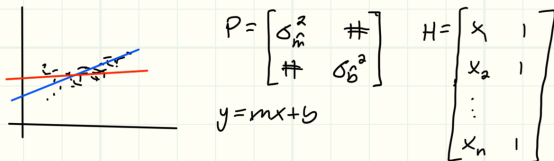 P = [σ_m̂² #
# σ_b̂²]
H = [x₁ 1
x₂ 1
⋮
xₙ 1]
y = mx + b